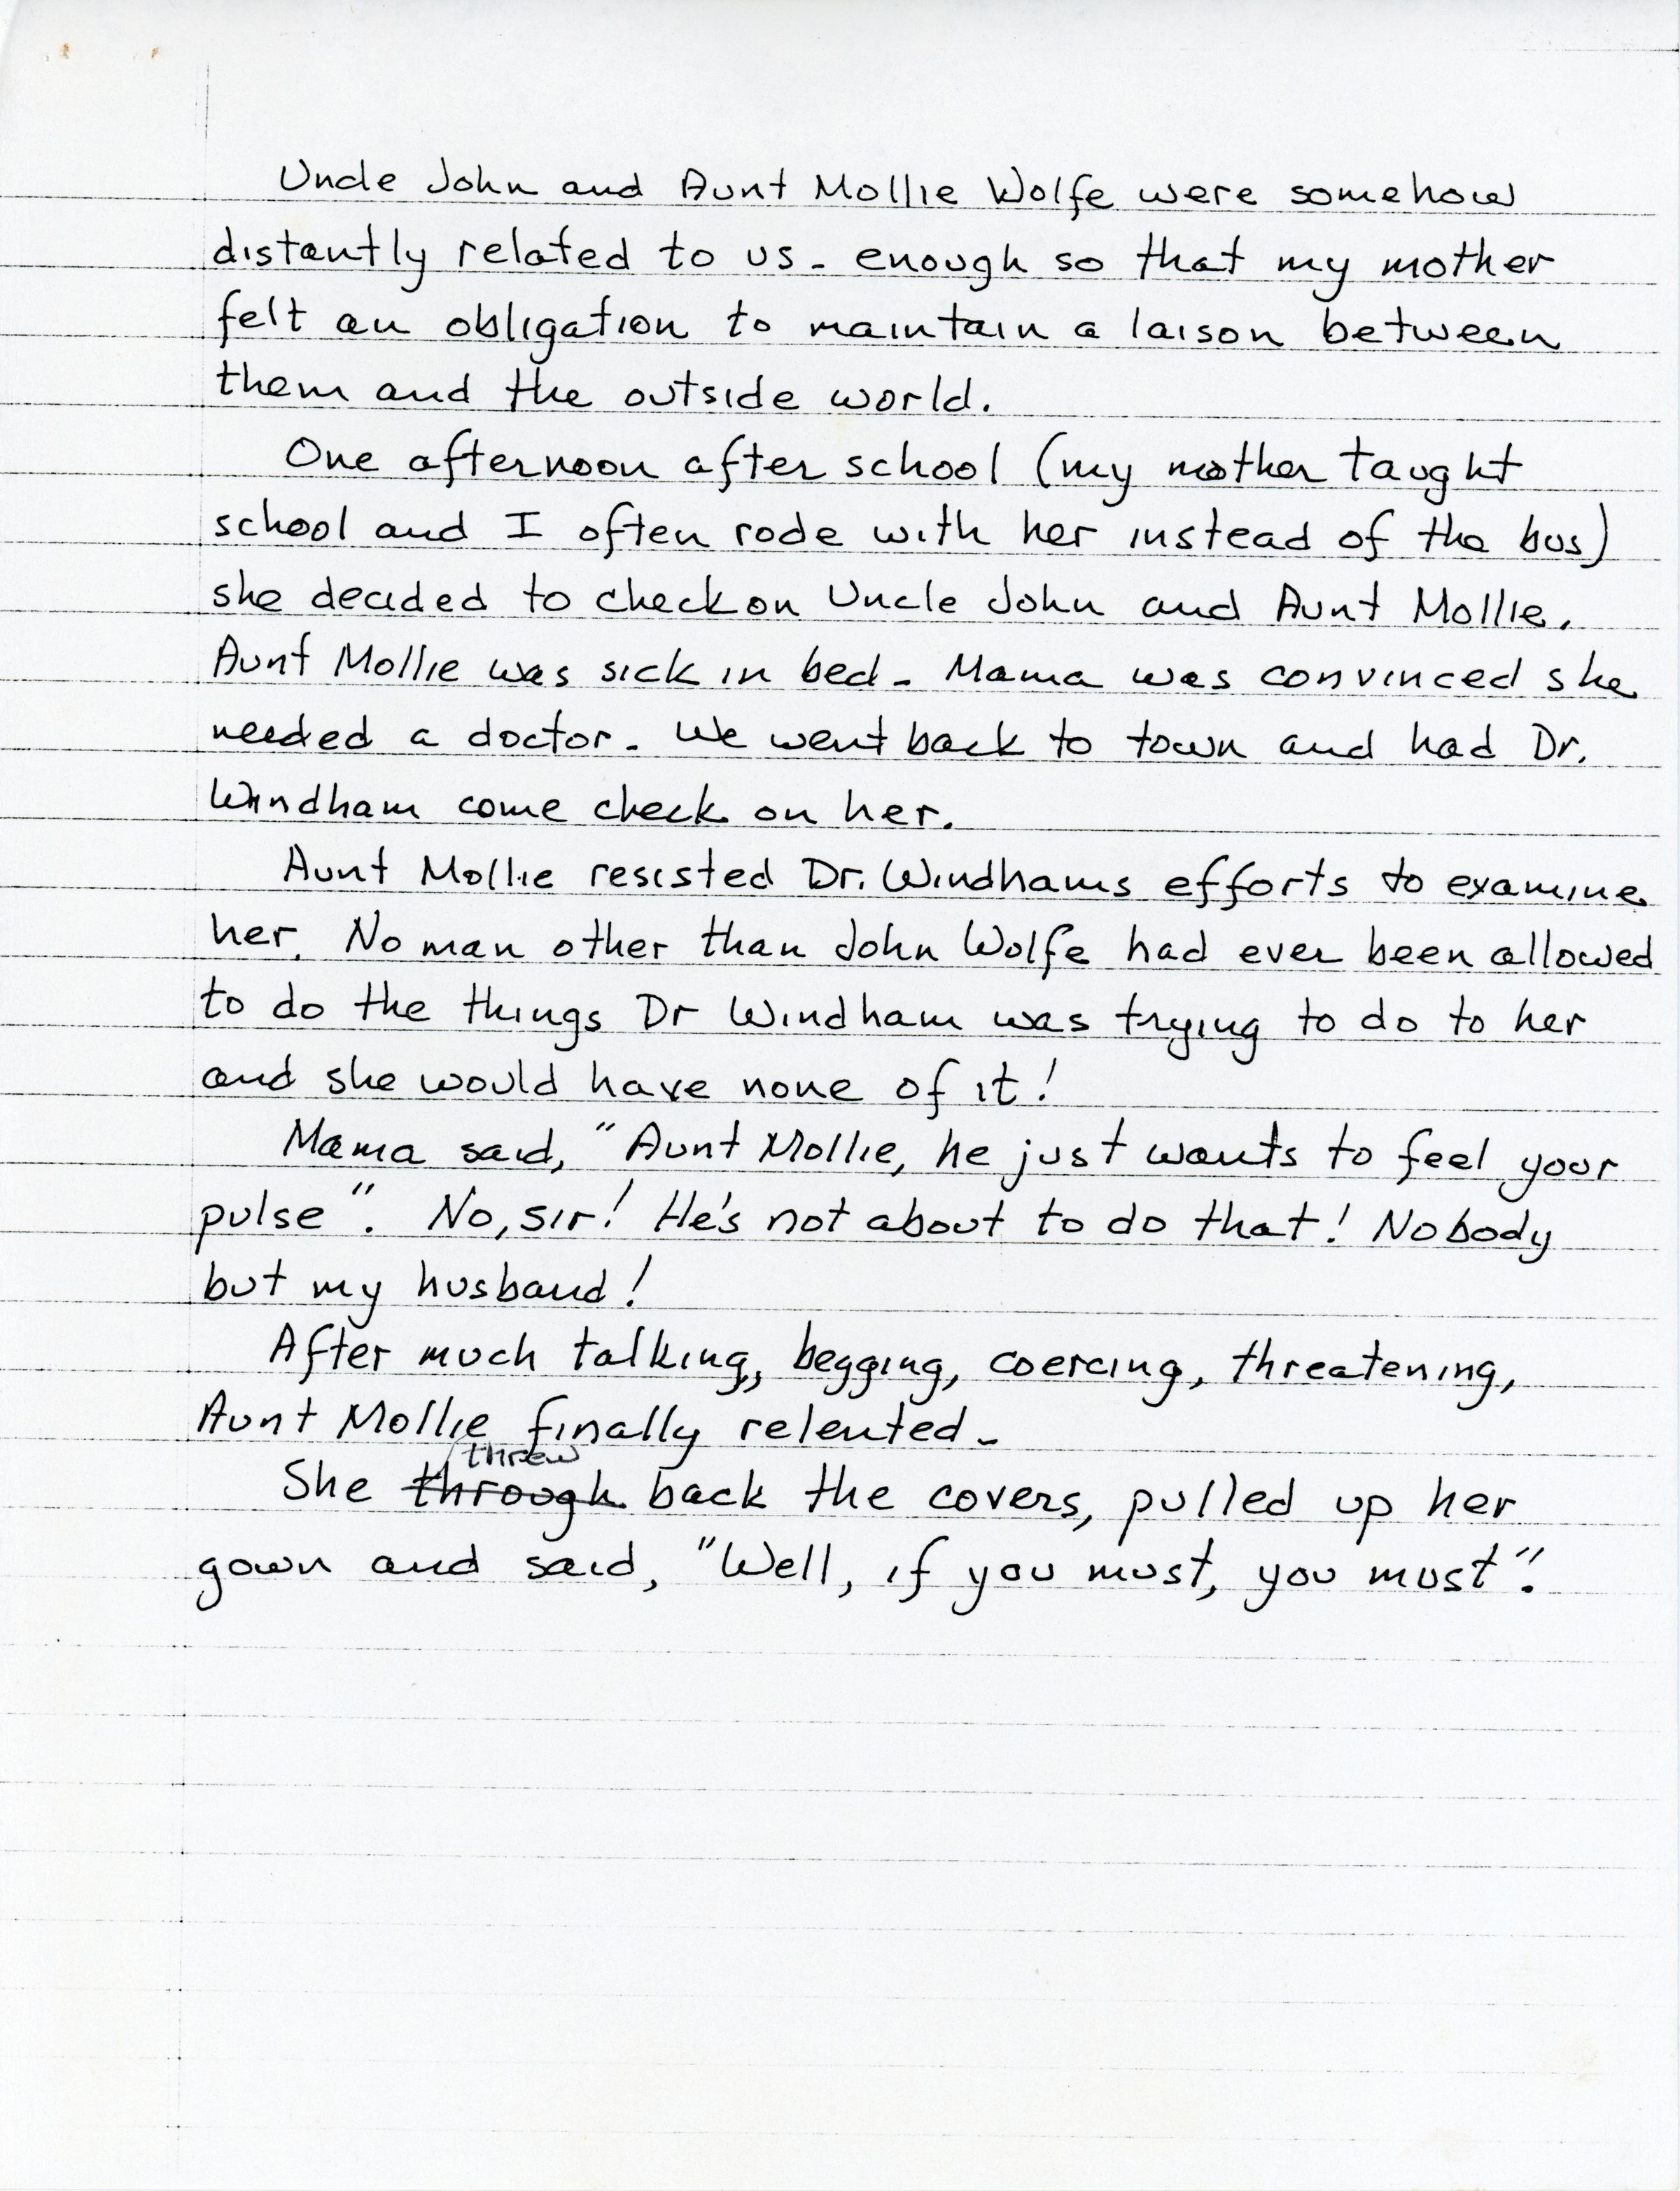 Uncle John and Aunt Mollie Wolfe were somehow
distantly related to us - enough so that my mother
felt an obligation to maintain a laison between
them and the outside world.
One afternoon after school (my mother taught
school and I often rode with her instead of the bus)
she decided to check on Uncle John and Aunt Mollie.
Aunt Mollie was sick in bed - Mama was convinced she
needed a doctor - We went back to town and had Dr.
Windham come check on her.
Aunt Mollie resisted Dr. Windhams efforts to examine
her. No man other than John Wolfe had ever been allowed
to do the things Dr Windham was trying to do to her
and she would have none of it!
Mama said, "Aunt Mollie, he just wants to feel your
pulse". No, sir! He's not about to do that! Nobody
but my husband!
After much talking, begging, coercing, threatening,
Aunt Mollie finally relented -
threw
She through back the covers, pulled up her
gown and said, "Well, if you must, you must".